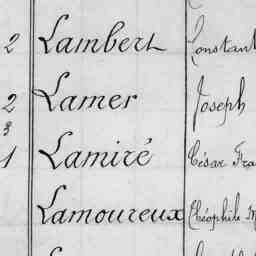 2 Lambert Constant
2 Lamer Joseph
3
1 Lamiré César Fra
Lamoureux Théophile M